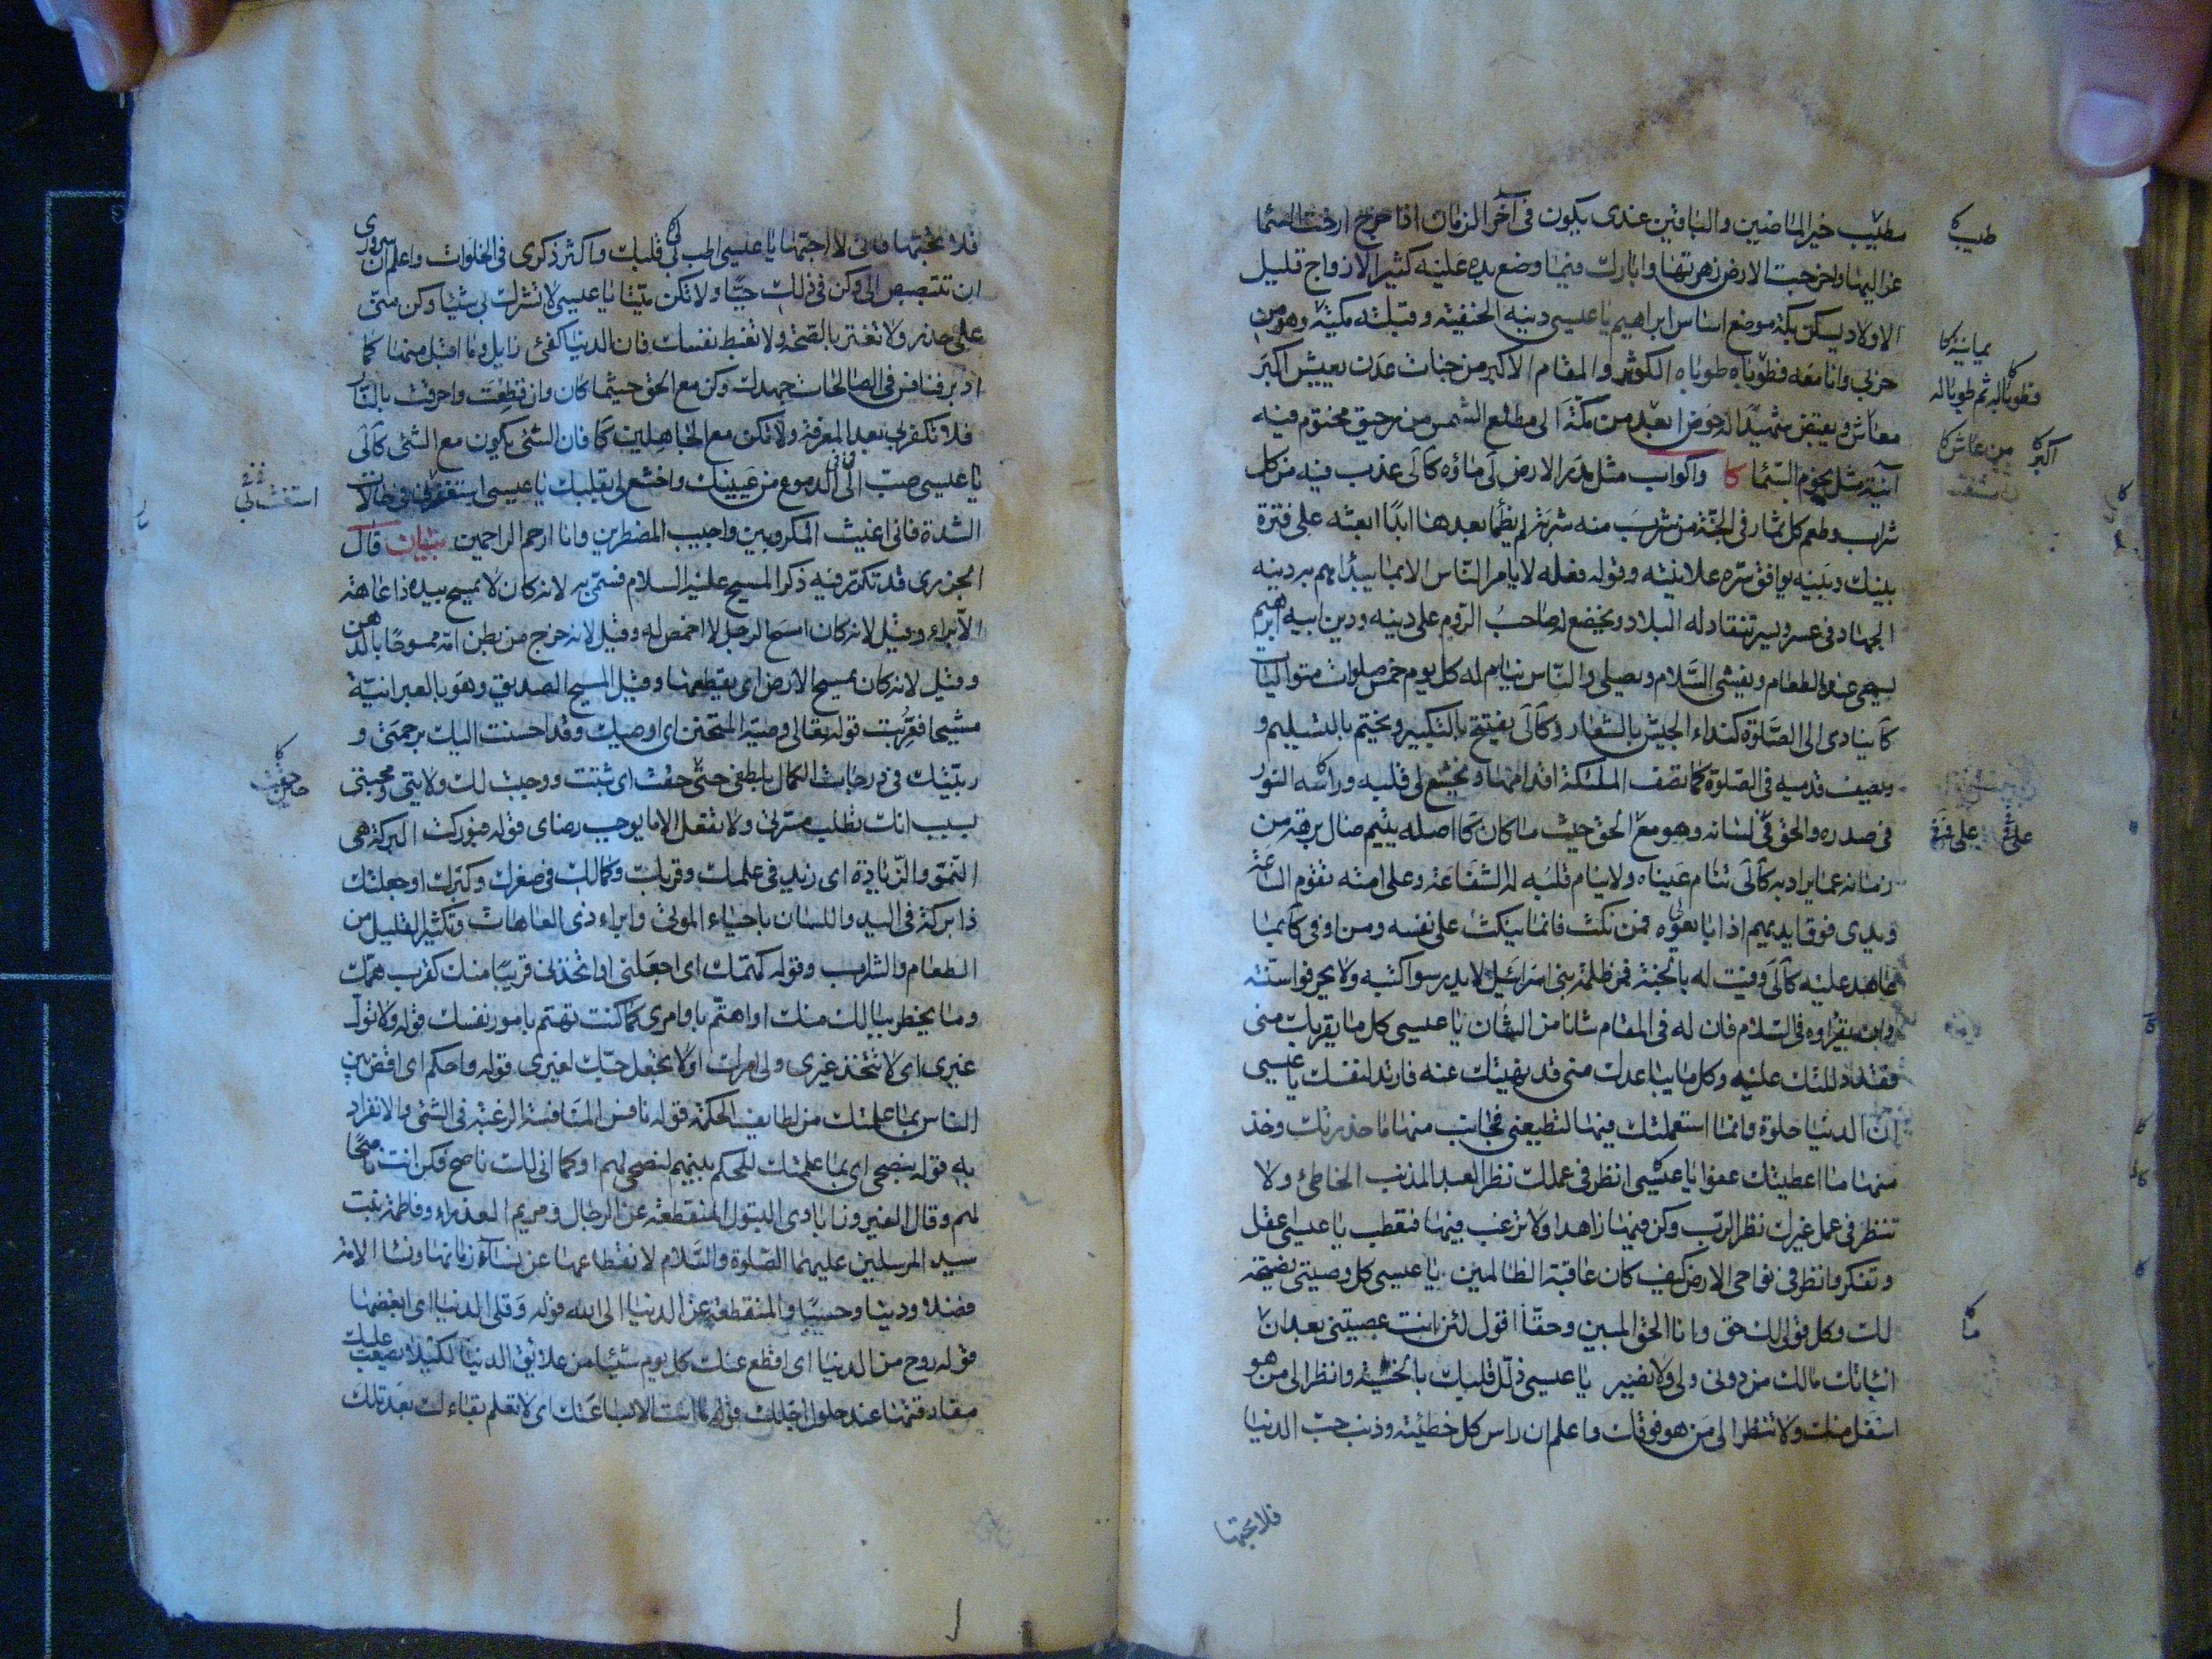 مطيّب خير الماضين والباقين عندى يكون فى آخر الزمان اذا خرج ارخت السّما
عزاليها واخرجت الارض زهرتها وابارك فيما وضع يده عليه كثير الازواج قليل
الاولاد يسكن بكة موضع اساس ابراهيم يا عيسى دينه الحنفية وقبلته مكية وهو من
حزبى وانا معه فطوباه طوباه الكوثر والمقام الاكبر من جنات عدن يعيش اكبر
معاش ويقبض شهيدًا له حوض ابعد من مكّة الى مطلع الشمس من رحيق مختوم فيه
آنية مثل نجوم السّما كا واكواب مثل مدر الارض لى ماؤه كا لى عذب فيه من كل
شراب وطعم كل ثمار فى الجنّة من شرب منه شربة لم يظما بعدها ابدًا ابعثه على فترة
بينك وبينه يوافق سرّه علانيته وقوله فعله لا يامر النّاس الا بما يبدأهم به دينه
الجهاد فى عسر ويسر تنقاد له البلاد ويخضع له صاحب الرّوم على دينه ودين ابيه ابرهيم
يسمى عند الطعام ويفشى السّلام ويصلى والنّاس نيام له كل يوم خمس صلوات متواليات
كا ينادى الى الصّلوة كنداء الجيش بالشعار وكا لى يفتتح بالتكبير ويختتم بالتسليم و
ويصف قدميه فى الصّلوة كما تصف الملئكة اقدامها ويخشع لى قلبه وراسه النّور
فى صدره والحق فى لسانه وهو مع الحق حيث ما كان كا اصله يتيم ضال برهة من
زمانه عما يراد به كا لى تنام عيناه ولا ينام قلبه له الشفاعة وعلى امته تقوم الساعة
ويدى فوق ايديهم اذا بايعوه فمن نكث فانما ينكث على نفسه ومن اوفى كا بما
عاهد عليه كا لى وفيت له بالجنة فمر ظلمة بنى اسرائيل لا يدرسوا كتبه ولا يحرفوا سنّته
وان يقرؤه السّلام فان له فى المقام شانا من الشان يا عيسى كل ما يقربك منى
فقد دللتك عليه وكل ما يباعدك منى قد نهيتك عنه فارتد لنفسك يا عيسى
انّ الدنيا حلوة وانما استعملتك فيها لتطيعنى فجانب منها ما حذرتك وخذ
منها ما اعطيتك عفوا يا عيسى انظر فى عملك نظر العبد المذنب الخاطئ ولا
تنظر فى عمل غيرك نظر الرّب وكن فيها زاهدا ولا ترغب فيها فتعطب يا عيسى اعقل
وتفكر وانظر فى نواحى الارض كيف كان عاقبة الظالمين يا عيسى كل وصيتى نصيحة
لك وكل قولى لك حق وانا الحق المبين وحقّا اقول لئن انت عصيتنى بعد ان
انباتك مالك من دونى ولى ولا نصير يا عيسى ذلّل قلبك بالخشية وانظر الى من هو
اسفل منك ولا تنظر الى من هو فوقك واعلم ان راس كل خطيئة وذنب حبّ الدنيا
فلا تحبّها
طيب كا
يمانية كا
فطوبى له ثم طوبى له
اكبر كا من عاش كا
على فترة
كا ما
فلا تحبّها فانى لا احبّها يا عيسى اطب لى قلبك واكثر ذكرى فى الخلوات واعلم ان سرورى
ان تبصبص الى وكن فى ذلك حيّا ولا تكن ميّتا يا عيسى لا تشرك بى شيئا وكن منّى
على حذر ولا تغتر بالصّحة ولا تغبط نفسك فان الدنيا كفئ زايل وما اقبل منها كما
ادبر فنافس فى الصالحات جهدك وكن مع الحق حيثما كان وان قطعت واحرقت بالنّار
فلا تكفر بى بعد المعرفة ولا تكن مع الجاهلين كا فان الشئ يكون مع الشئ كا لى
يا عيسى صبّ الى الدموع من عينيك واخشع لى بقلبك يا عيسى استغفرنى فى حالات
الشدة فانى اغيث المكروبين واجيب المضطرين وانا ارحم الراحمين بيان قال
الجزرى قد تكرّر فيه ذكر المسيح عليه السلام فسمّى به لانه كان لا يمسح بيده ذا عاهة
الا برا وقيل لانه كان امسح الرجل لا اخمص له وقيل لانه خرج من بطن امّه ممسوحًا بالدهن
وقيل لانه كان يمسح الارض اى يقطعها وقيل المسيح الصديق وهو بالعبرانيّة
مشيحا فعرّبت قوله تعالى وصيّة المتحنن اى اوصيك وقد احسنت اليك برحمتى و
ربّيتك فى درجات الكمال بلطفى حتّى حقّت اى ثبتت ووجبت لك ولايتى ومحبتى
بسبب انك تطلب مسرّتى ولا تفعل الا ما يوجب رضاى قوله فبوركت البركة هى
النّموّ والزّيادة اى زيد فى علمك وقربك وكمالك فى صغرك وكبرك او جعلتك
ذا بركة فى اليد واللسان باحياء الموتى وابراء ذى العاهات وتكثير القليل من
الطعام والشراب وقوله كهمّك اى اجعلنى او اتخذنى قريبًا منك كقرب همّك
وما يخطر ببالك منك او اهتمّ باوامرى كما كنت تهتم بامور نفسك قوله ولا تولّ
غيرى اى لا تتخذ غيرى ولى امرك او لا تجعل حبّك لغيرى قوله واحكم اى اقض بين
النّاس بما علمتك من لطايف الحكمة قوله نافس المنافسة الرغبة فى الشئ والانفراد
به قوله بنصحى اى بما علمتك للحكم بينهم لنصحى لهم او كما انى لك ناصح فكن انت ناصحًا
لهم وقال الفيروزابادى البتول المنقطعة عن الرجال ومريم العذراء وفاطمة بنت
سيد المرسلين عليهما الصّلوة والسّلام لانقطاعها عن نساء زمانها ونساء الامّة
فضلا ودينا وحسبًا والمنقطعة عن الدنيا الى الله قوله وقلى الدنيا اى ابغضها
قوله روح من الدنيا اى اقطع عنك كل يوم شيئا من علائق الدنيا لكيلا يصعب عليك
مفارقتها عند حلول اجلك قوله ما انبت الا بساعتك اى لا تعلم بقاءك بعد تلك
استغث بى
حقّت كا